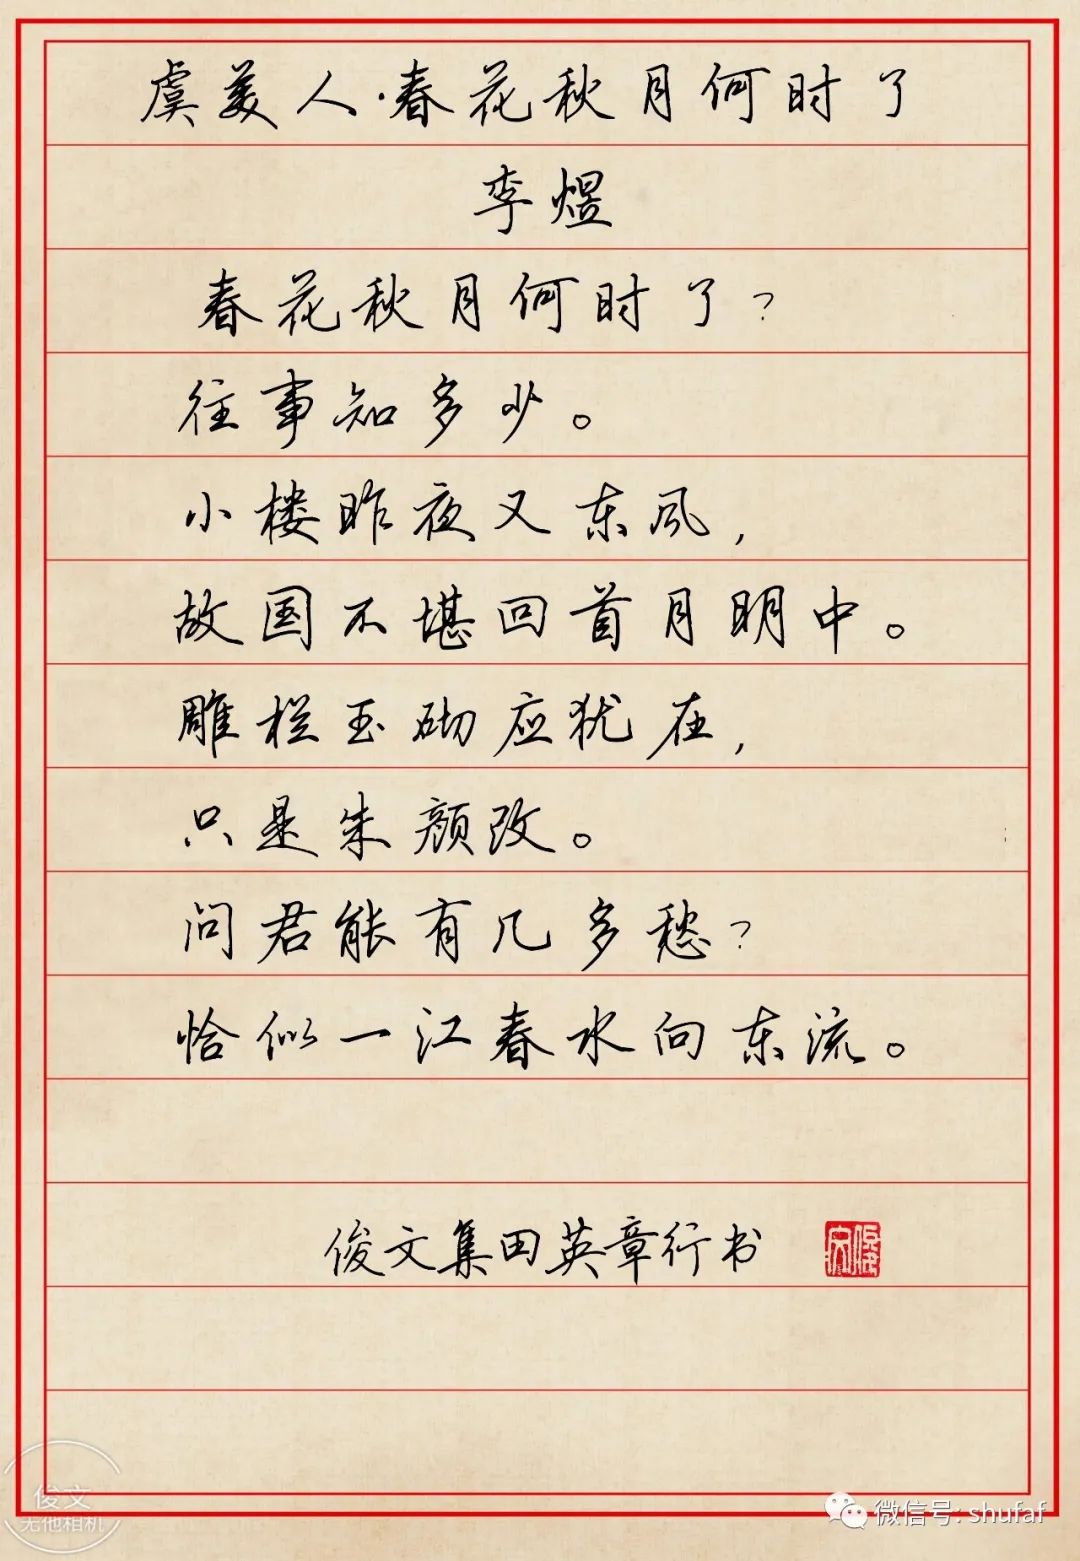 虞美人·春花秋月何时了
李煜
春花秋月何时了？
往事知多少。
小楼昨夜又东风，
故国不堪回首月明中。
雕栏玉砌应犹在，
只是朱颜改。
问君能有几多愁？
恰似一江春水向东流。
俊文集田英章行书
俊文
俊文
无他相机
微信号: shufaf